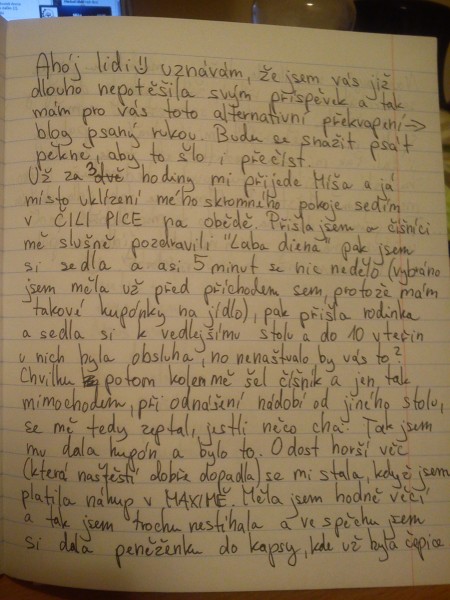 Ahoj lidi!! uznávám, že jsem vás již
dlouho nepotěšila svým příspěvek a tak
mám pro vás toto alternativní překvapení→
blog psaný rukou. Budu se snažit psát
pěkně, aby to šlo i přečíst.
Už za 3 hodiny mi přijede Míša a já
místo uklízení mého skromného pokoje sedím
v ČILI PICE na obědě. Přišla jsem a číšníci
mě slušně pozdravili "Laba diena" pak jsem
si sedla a asi 5 minut se nic nedělo (vybráno
jsem měla už před příchodem sem, protože mám
takové kupónky na jídlo), pak přišla rodinka
a sedla si k vedlejšímu stolu a do 10 vteřin
u nich byla obsluha, no nenaštvalo by vás to?
Chvilku potom kolem mě šel číšník a jen tak
mimochodem, při odnášení nádobí od jiného stolu,
se mě tedy zeptal, jestli něco chci. Tak jsem
mu dala kupón a bylo to. O dost horší věc
(která naštěstí dobře dopadla) se mi stala, když jsem
platila nákup v MAXIMĚ. Měla jsem hodně věcí
a tak jsem trochu nestíhala a ve spěchu jsem
si dala peněženku do kapsy, kde už byla čepice